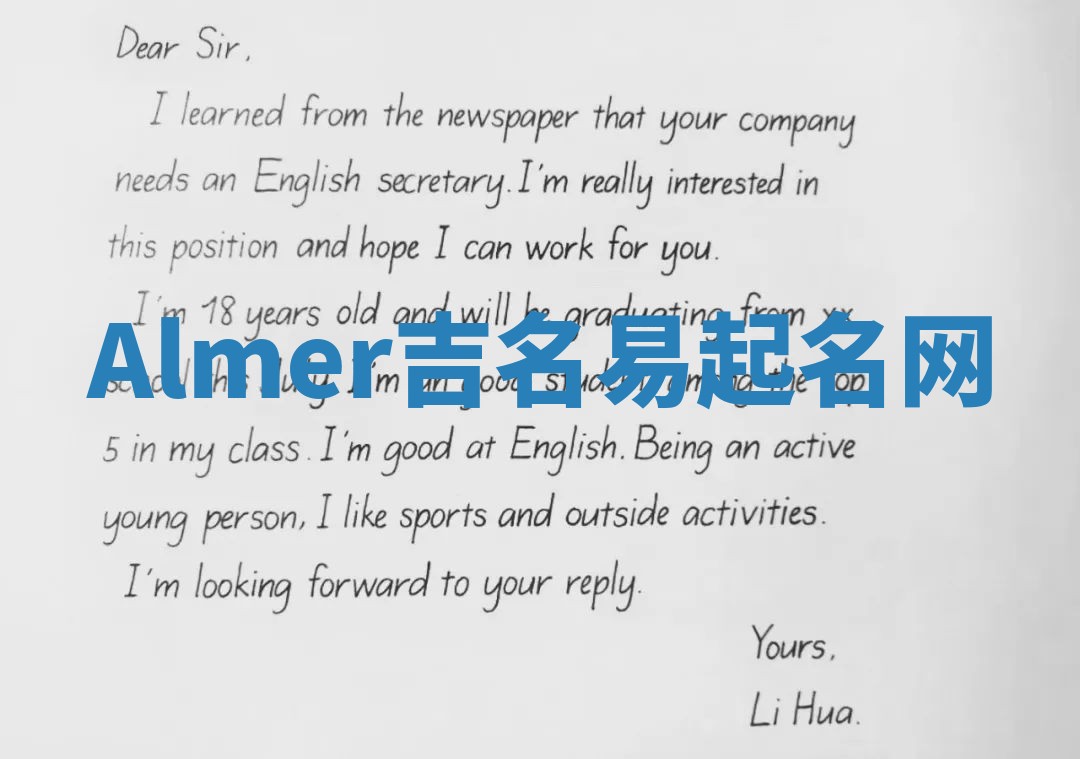 Dear Sir,
I learned from the newspaper that your company
needs an English secretary. I'm really interested in
this position and hope I can work for you.
I'm 18 years old and will be graduating from xx
Almer吉名易起名网
school this July. I'm an good student among the top
5 in my class. I'm good at English. Being an active
young person, I like sports and outside activities.
I'm looking forward to your reply.
Yours,
Li Hua.